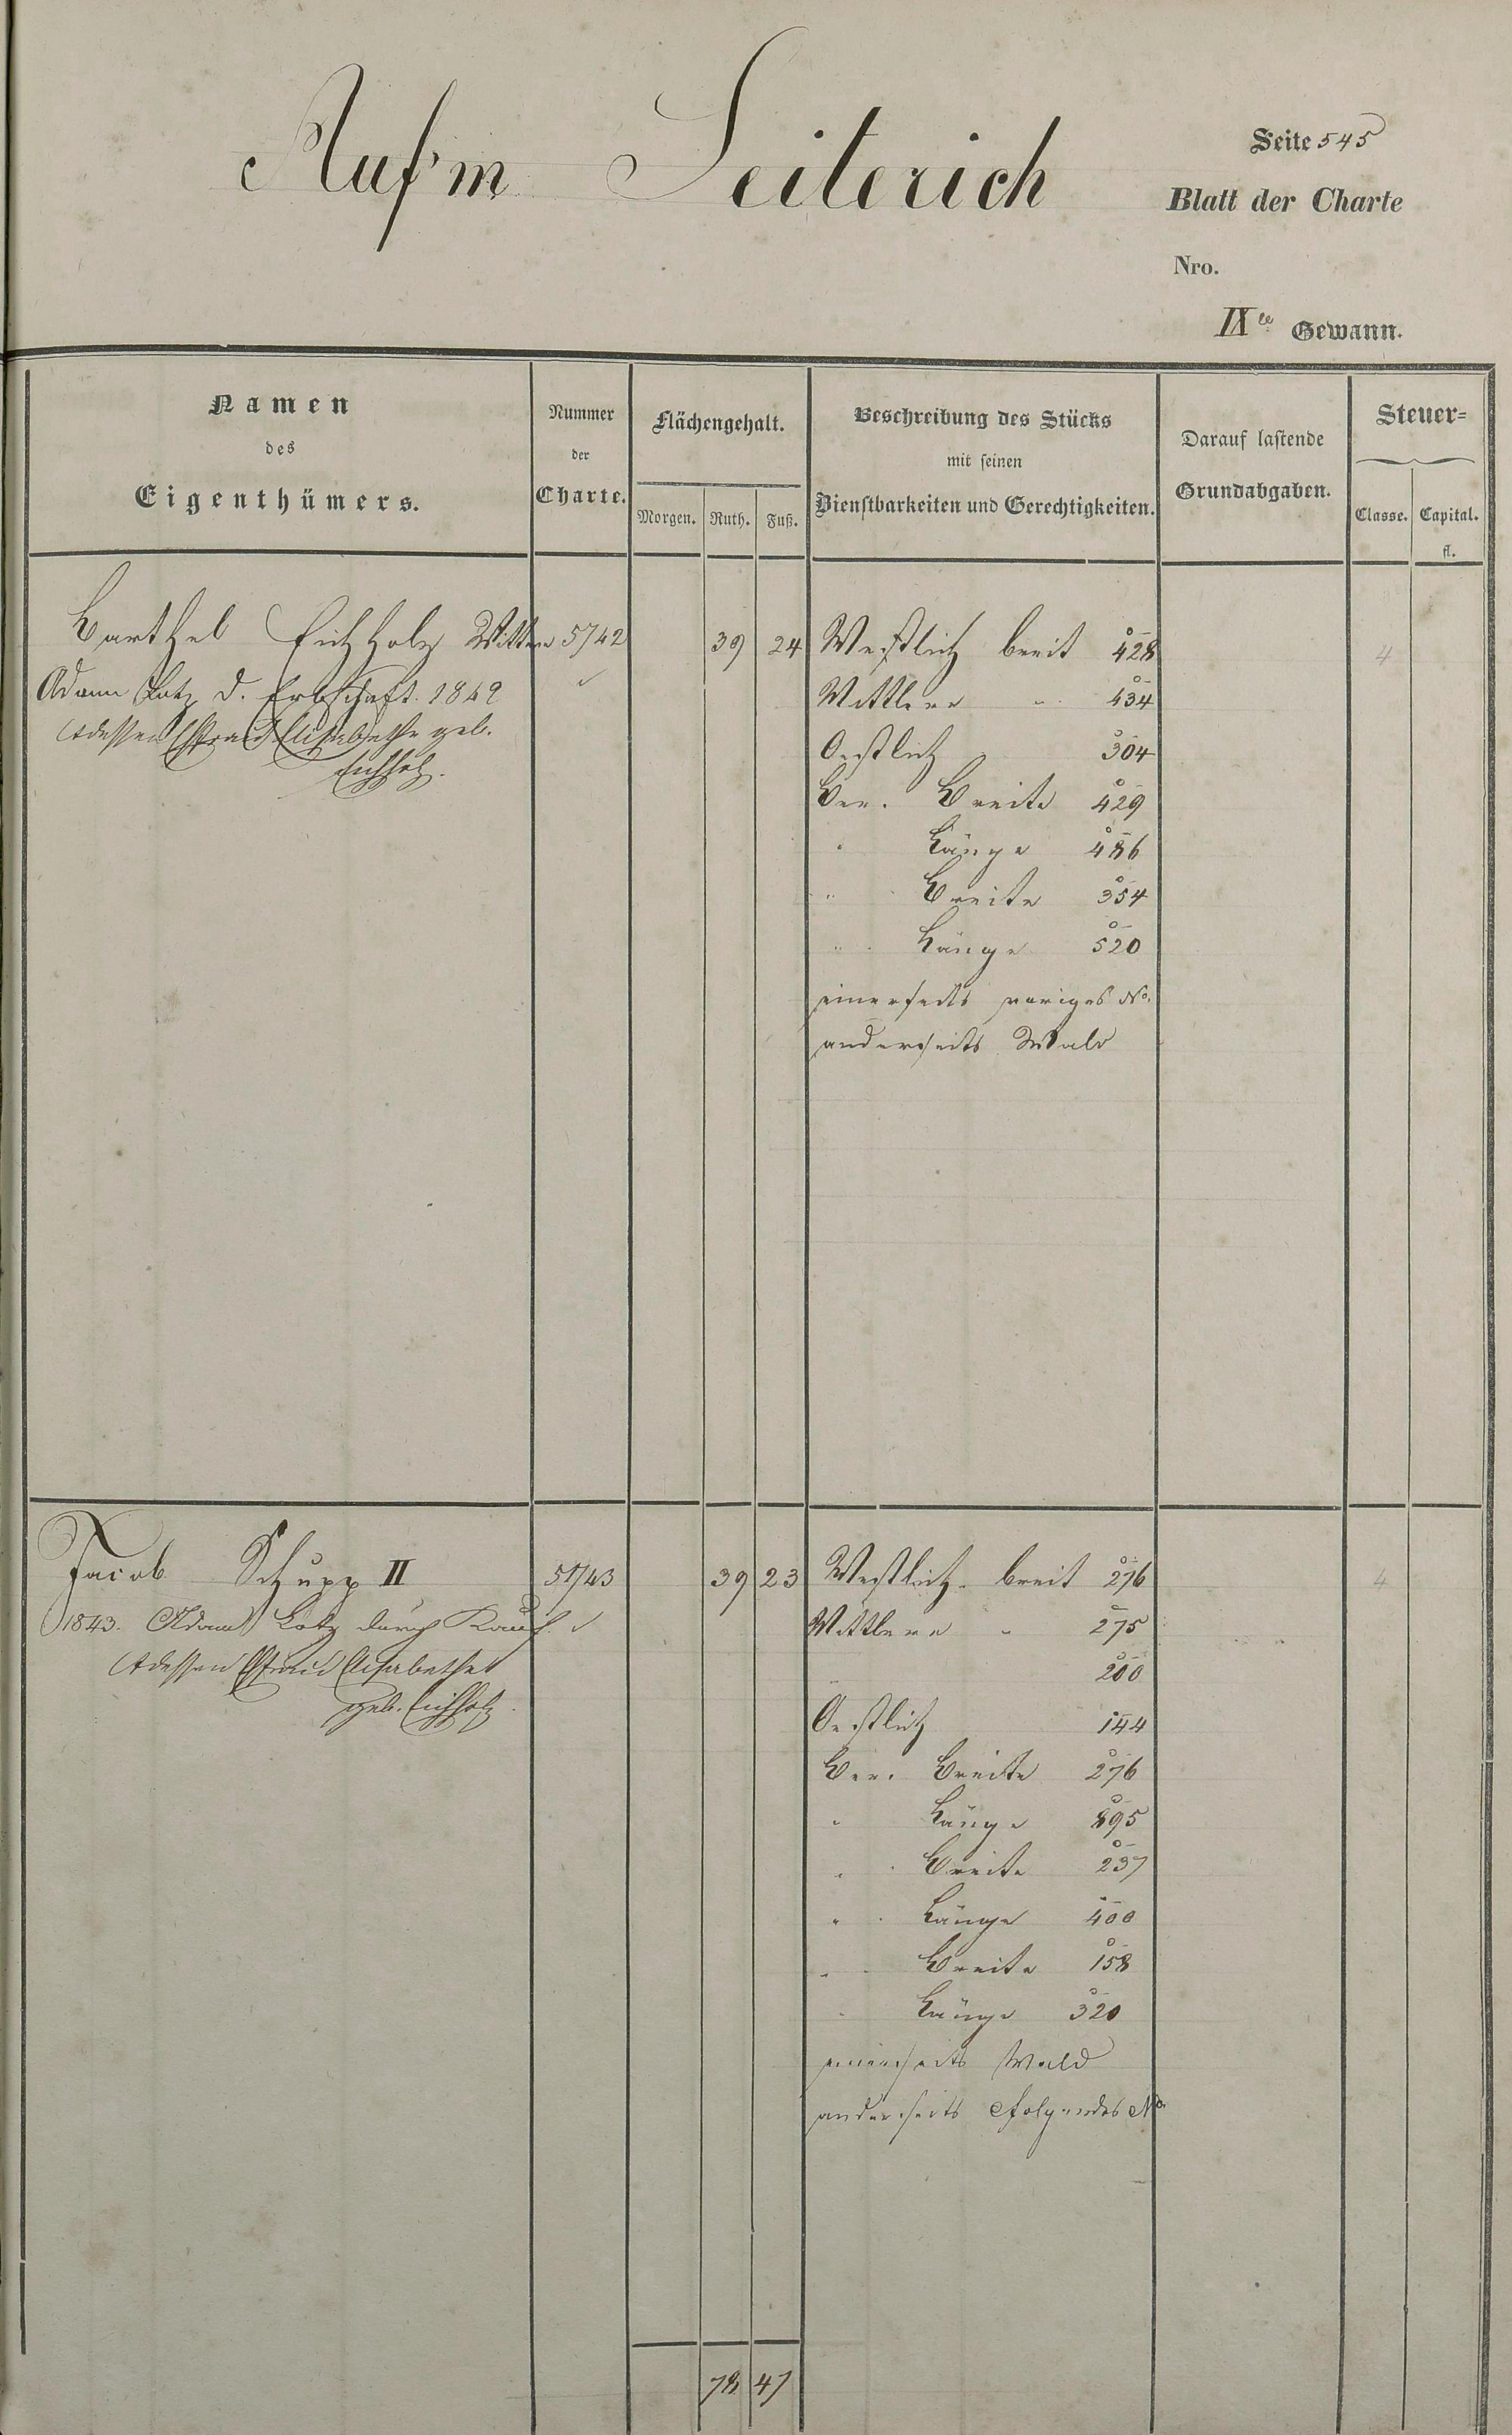 Auf'm Leiterich
Seite 545
Blatt der Charte
Nro.
IXte Gewann.
Namen
des
Eigenthümers.
Nummer
der
Charte.
Flächengehalt.
Morgen. Ruth. Fuß.
Beschreibung des Stücks
mit seinen
Dienstbarkeiten und Gerechtigkeiten.
Darauf lastende
Grundabgaben.
Steuer=
Classe. Capital.
fl.
Barthel Eichholz Wittwe 5742 39 24 Westlich breit 428 4
Adam Lotz d. Erbschaft. 1842 Mittlere " 434
dessen Frau Elisabethe geb. Oestlich 304
Eichholz.
Ber. Breite 429
" Länge 486
" Breite 354
" Länge 520
einerseits voriges No.
anderseits Wald
Jacob Schupp II 5743 39 23 Westlich breit 276 4
1843. Adam Lotz durch Kauf. Mittlere " 275
dessen Frau Elisabethe " 200
geb. Eichholz. Oestlich 144
Ber. Breite 276
" Länge 895
" Breite 237
" Länge 400
" Breite 158
" Länge 320
einerseits Wald
anderseits folgendes No
78 47